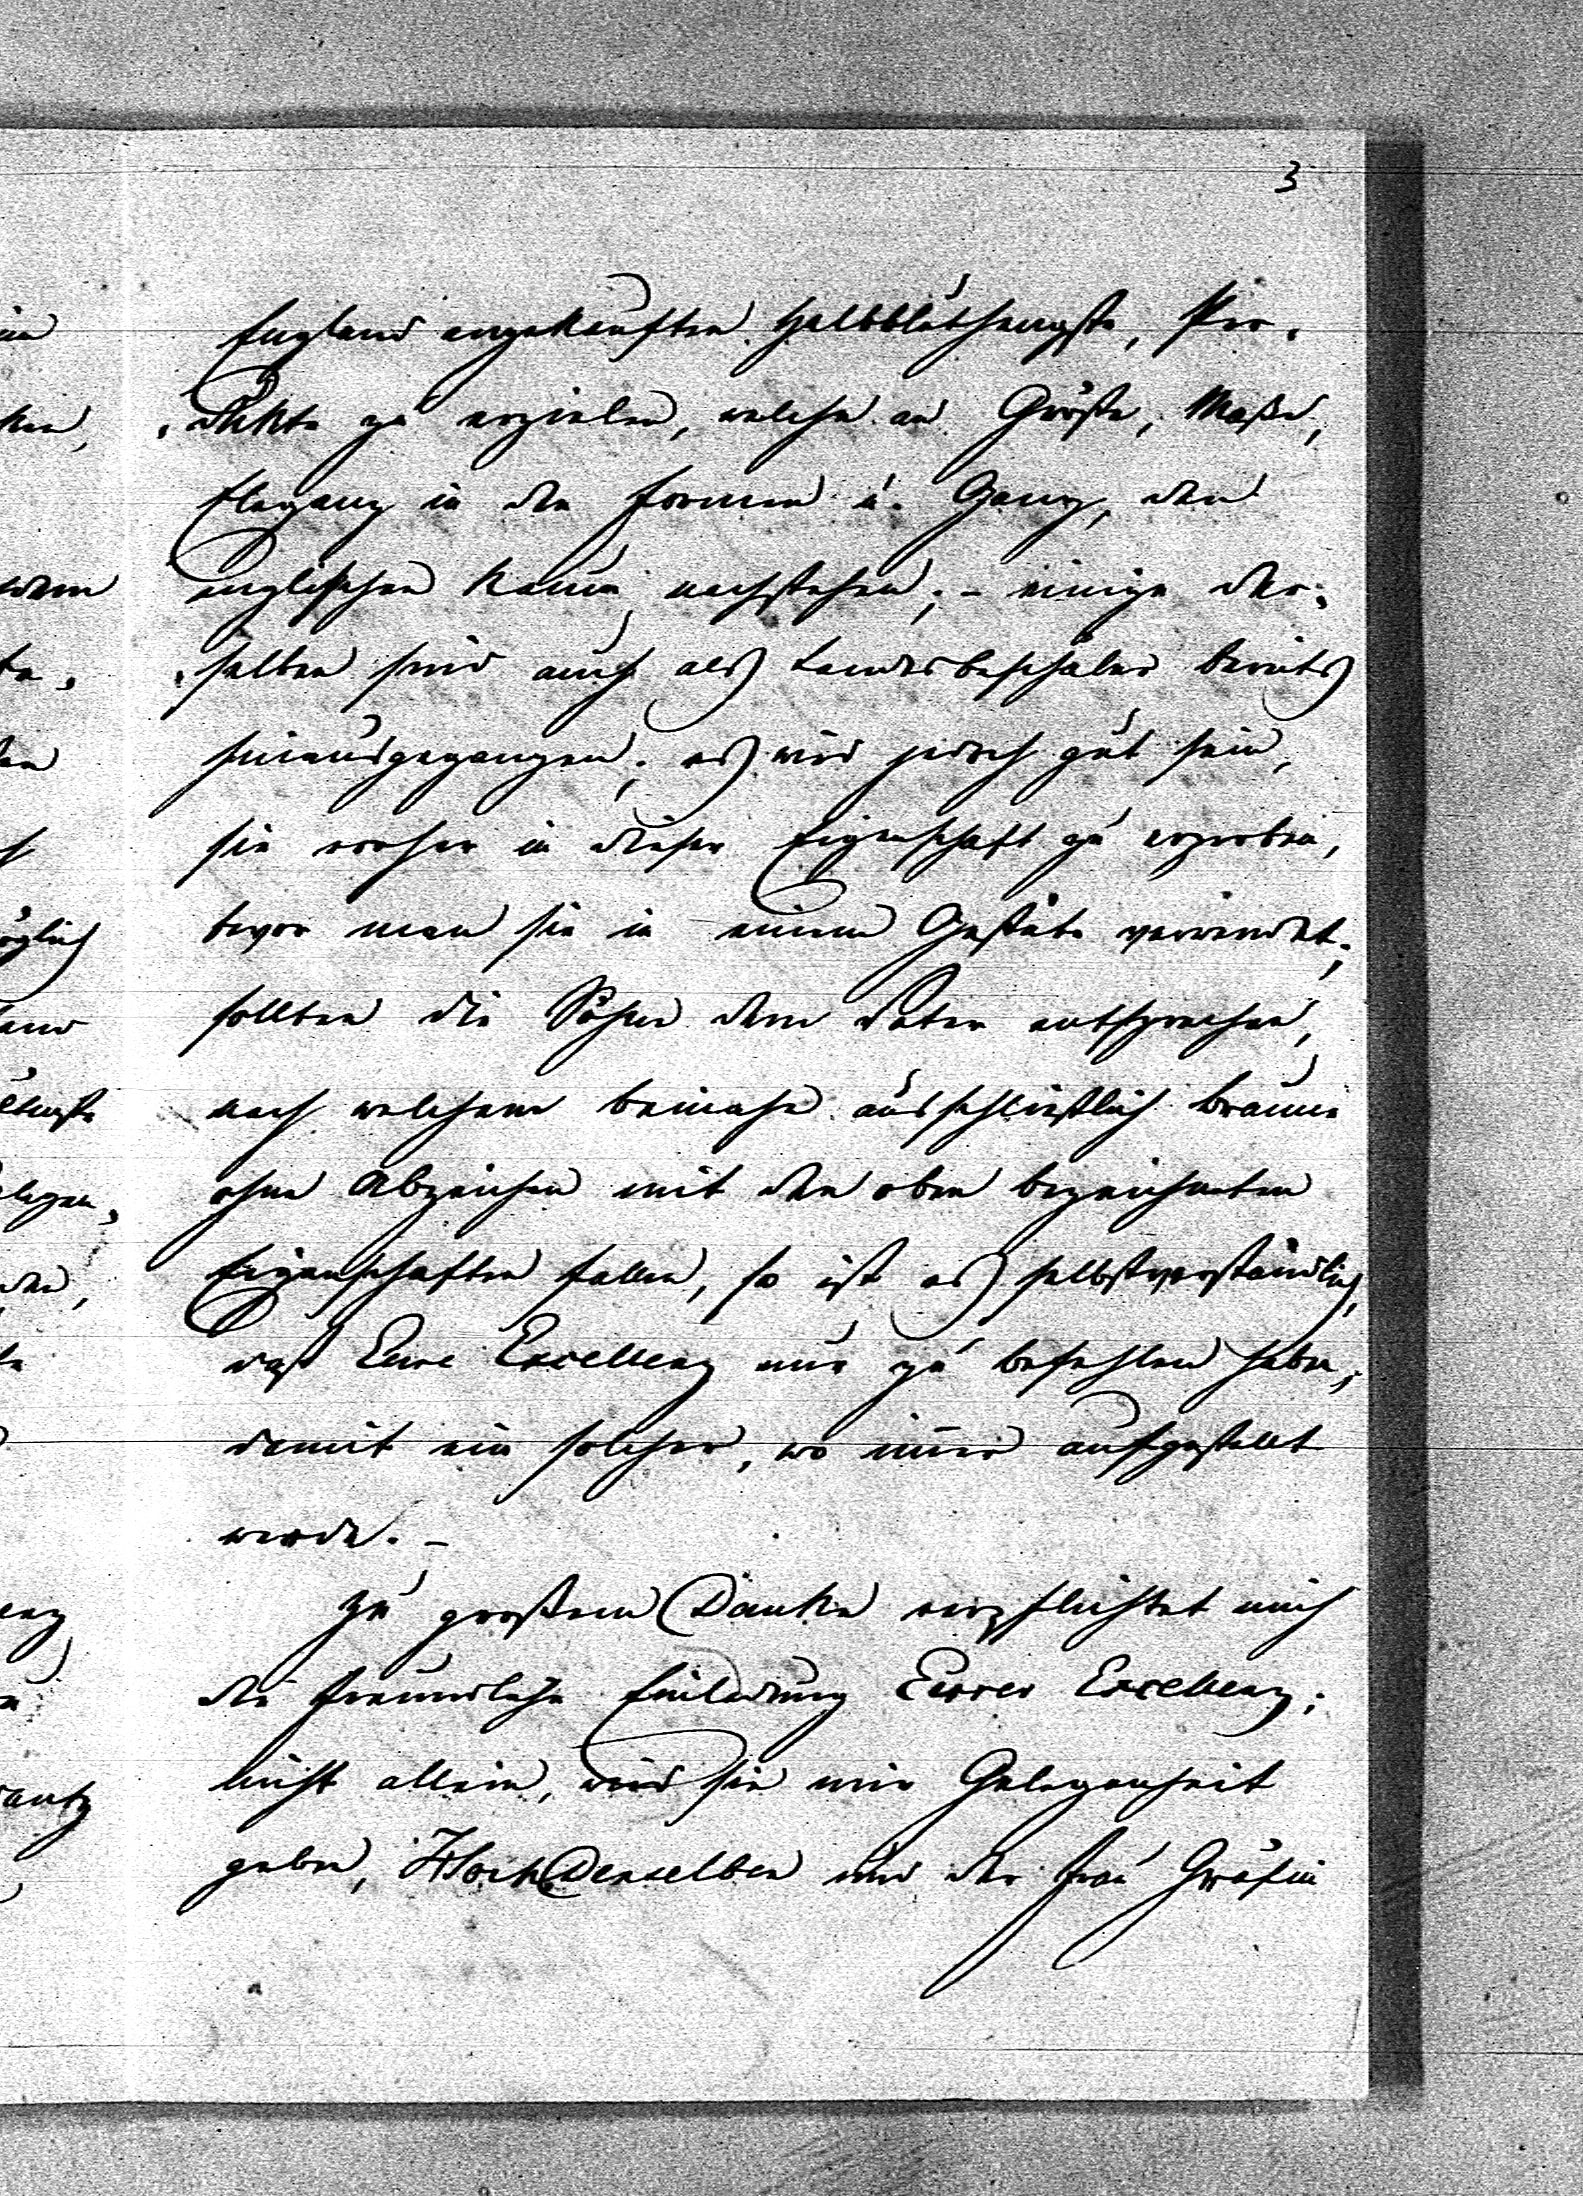 3
England angekauften Halbbluthengste, Pro-
-dukte zu erzielen, welche an Größe, Maße,
Eleganz in den Formen u. Gang, den
englischen kaum nachstehen; - einige der-
-selben sind auch als Landesbeschäler bereits
hinausgegangen; es wird jedoch gut sein,
sie vorher in dieser Eigenschaft zu erproben,
bevor man sie in einem Gestüte verwendet;
sollten die Söhne dem Vater entsprechen,
nach welchem beinahe ausschließlich braune
ohne Abzeichen mit den oben bezeichneten
Eigenschaften fallen, so ist es selbstverständlich,
daß Eure Excellenz nur zu befehlen haben,
damit ein solcher, wo immer aufgestellt
werde. -
Zu großem Danke verpflichtet mich
die freundliche Einladung Eurer Excellenz;
nicht allein, wird sie mir Gelegenheit
geben, Hoch Denselben und der Frau Gräfin